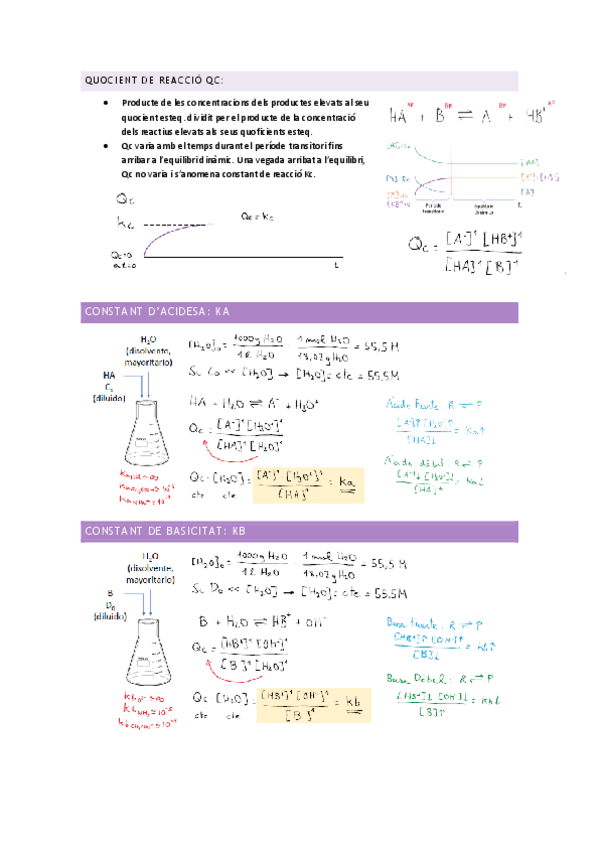 QUOCIENT DE REACCIÓ QC:
• Producte de les concentracions dels productes elevats al seu
quocient esteq. dividit per el producte de la concentració
dels reactius elevats als seus quoficients esteq.
• Qc varia amb el temps durant el període transitori fins
arribar a l'equilibri dinàmic. Una vegada arribat a l'equilibri,
Qc no varia i s'anomena constant de reacció Kc.
HA + B ⇌ A⁻ + HB⁺
[HA]
[B]
Període transitori
Equilibri Dinàmic
t
Qc
Kc
Qc = Kc
Qc=0
at=0
t
Qc = [A⁻]¹ [HB⁺]¹ / [HA]¹ [B]¹
CONSTANT D'ACIDESA: KA
H₂O
(disolvente,
mayoritario)
HA
C₀
(diluido)
[H₂O]₀ = 1000g H₂O / 1 L H₂O · 1 mol H₂O / 18,02g H₂O = 55,5 M
Si C₀ << [H₂O] → [H₂O] = cte = 55,5M
HA + H₂O ⇌ A⁻ + H₃O⁺
Qc = [A⁻]¹ [H₃O⁺]¹ / [HA]¹ [H₂O]¹
Qc · [H₂O] = [A⁻]¹ [H₃O⁺]¹ / [HA]¹ = Ka
cte cte
Ácido Fuerte: R ⇌ P
[A⁻]↑ [H₃O⁺]↑ / [HA]↓ = Ka↑
Ácido débil: R ⇌ P
[A⁻]↓ [H₃O⁺]↓ / [HA]↑ = Ka↓
CONSTANT DE BASICITAT: KB
H₂O
(disolvente,
mayoritario)
B
D₀
(diluido)
[H₂O]₀ = 1000g H₂O / 1 L H₂O · 1 mol H₂O / 18,02g H₂O = 55,5 M
Si D₀ << [H₂O] → [H₂O] = cte = 55,5M
B + H₂O ⇌ HB⁺ + OH⁻
Qc = [HB⁺]¹ [OH⁻]¹ / [B]¹ [H₂O]¹
Qc · [H₂O] = [HB⁺]¹ [OH⁻]¹ / [B]¹ = Kb
cte cte
Base fuerte: R ⇌ P
[HB⁺]↑ [OH⁻]↑ / [B]↓ = Kb↑
Base Debil: R ⇌ P
[HB⁺]↓ [OH⁻]↓ / [B]↑ = Kb↓